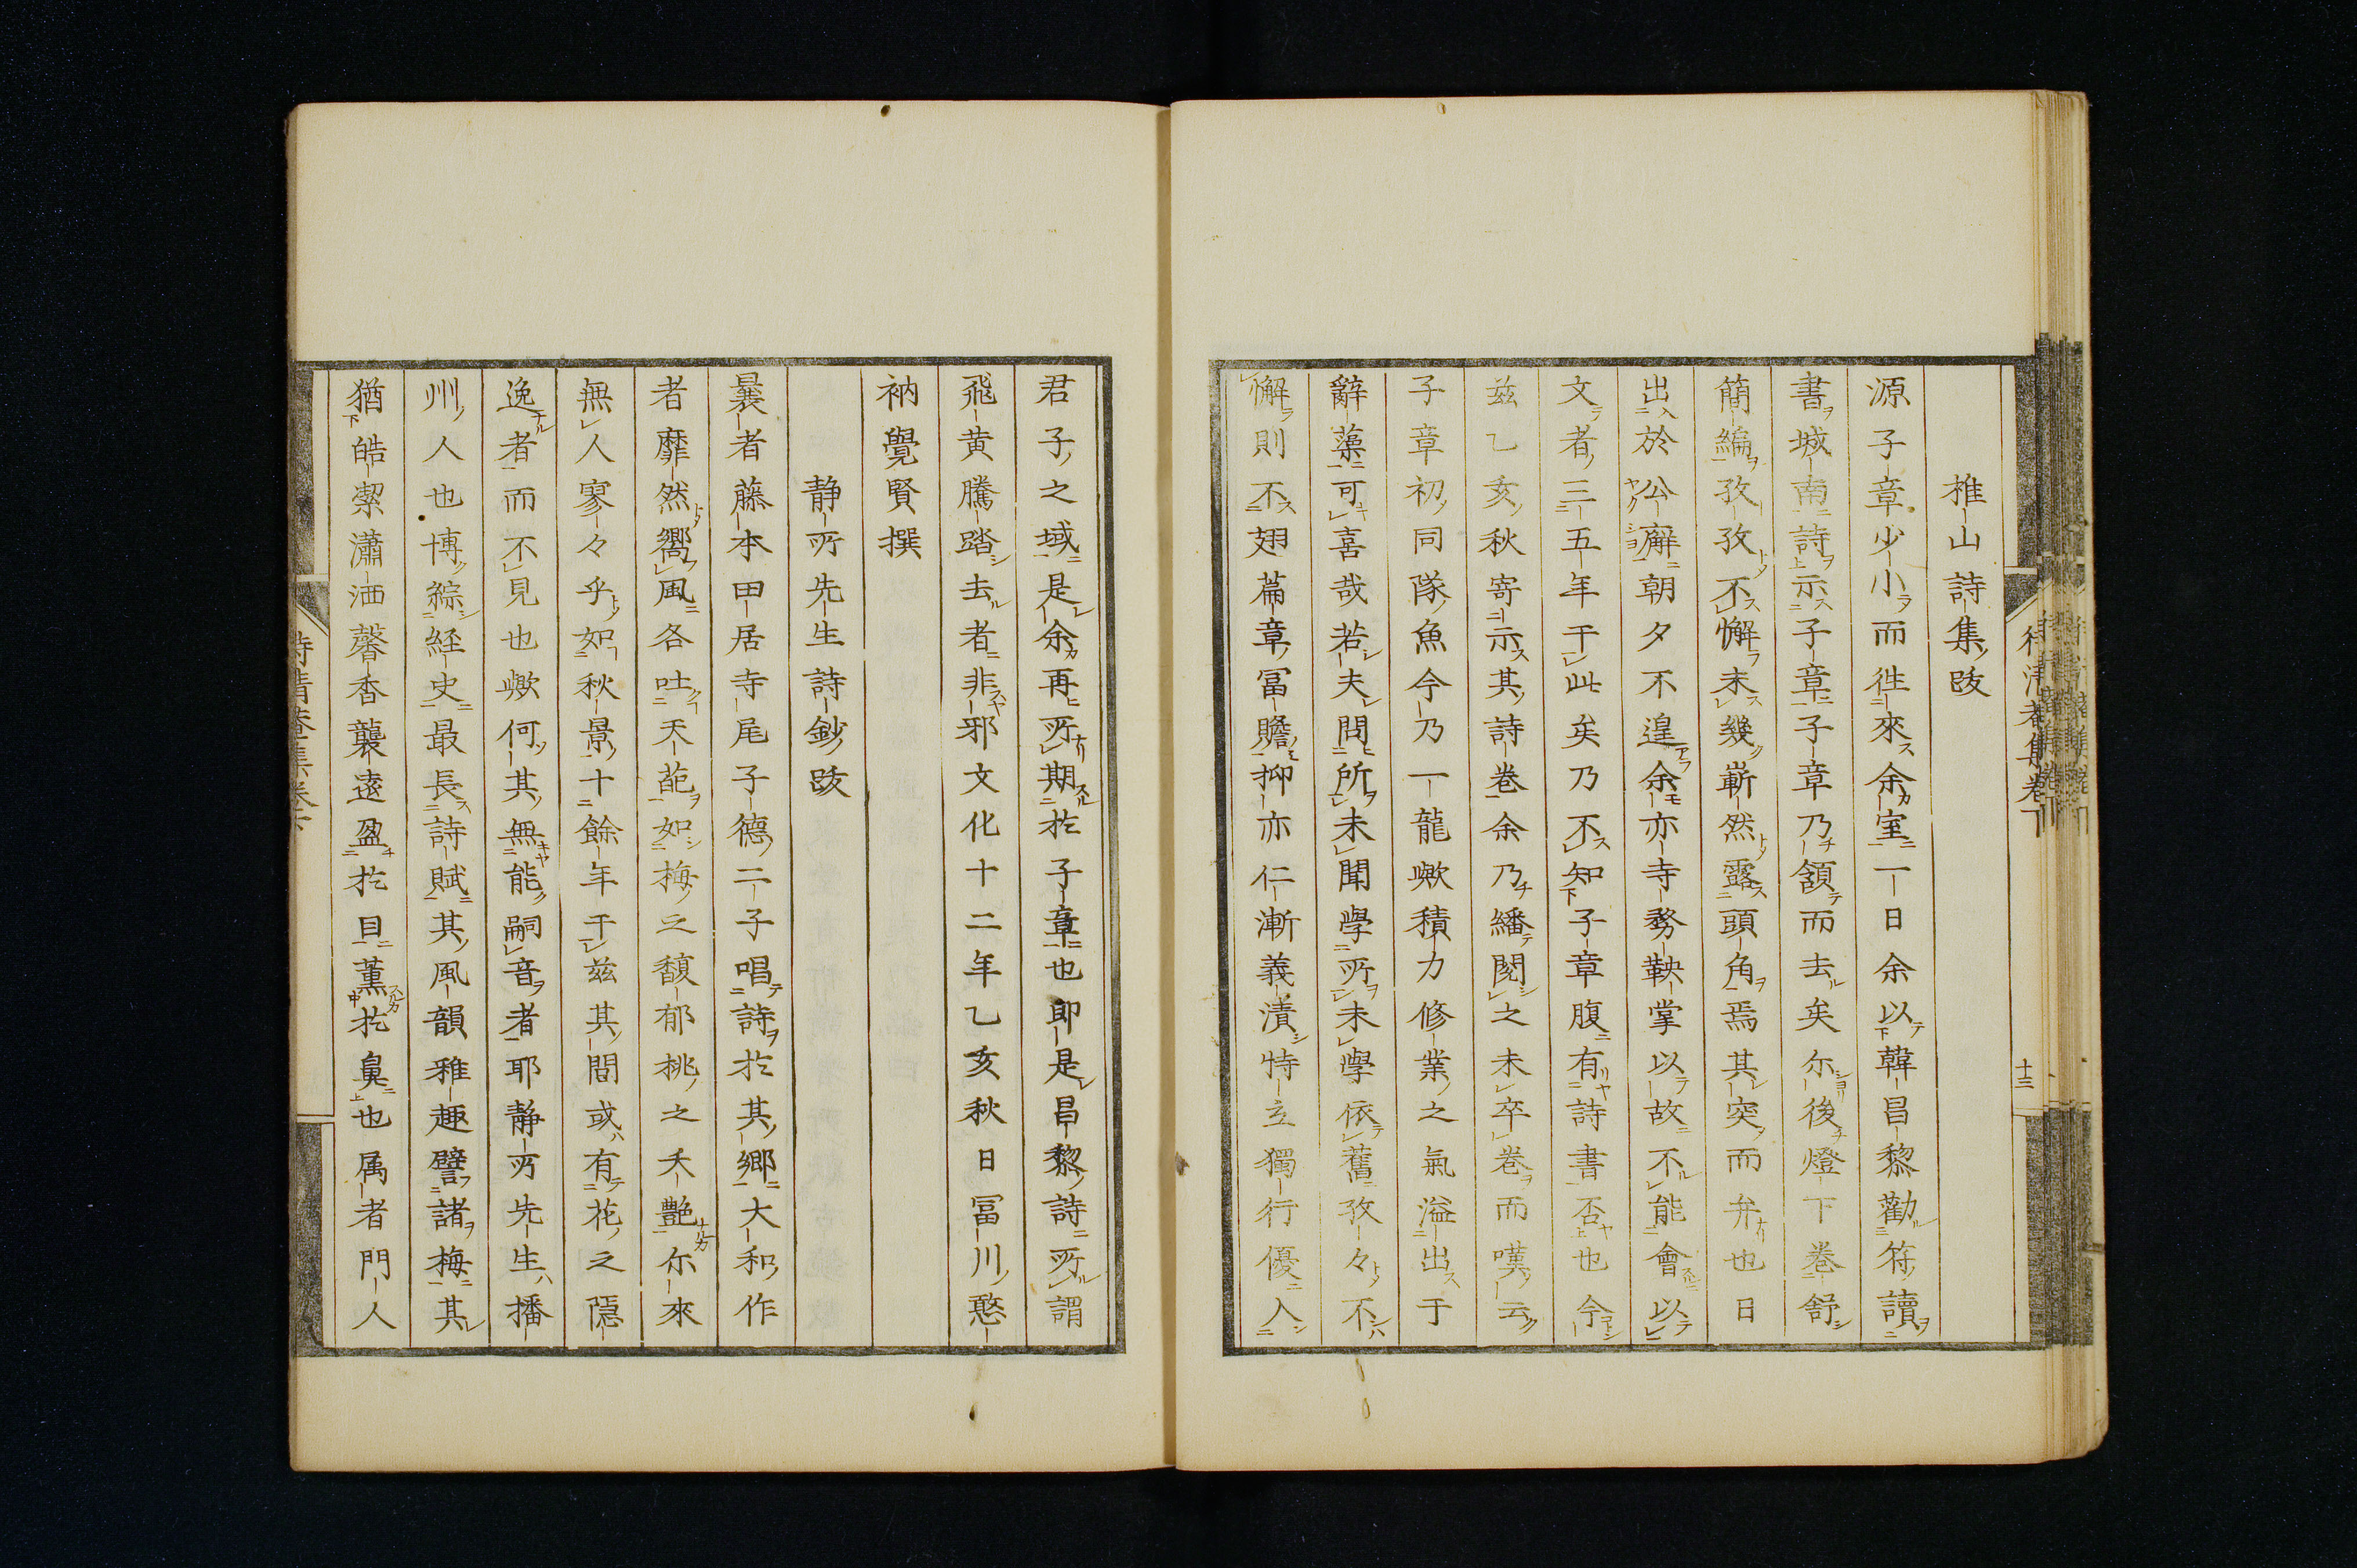 椎山詩集跋
源子章少小而徃來余室一日余以韓昌黎勸符讀
書城南詩示子章子章乃頷而去矣尓後燈下巻舒
簡編孜孜不懈未幾嶄然露頭角焉其突而弁也日
出於公廨朝夕不遑余亦寺務鞅掌以故不能會以
文者三五年于此矣乃不知子章腹有詩書否也今
兹乙亥秋寄示其詩巻余乃繙閲之未卒巻而嘆云
子章初同隊魚今乃一龍歟積力修業之氣溢出于
辭藻可喜哉若夫問所未聞學所未學依舊孜々不
懈則不翅篇章冨贍抑亦仁漸義漬特立獨行優入
君子之域是余再所期於子章也即是昌黎詩所謂
飛黄騰踏去者非邪文化十二年乙亥秋日冨川憨
衲覺賢撰
静所先生詩鈔跋
曩者藤本田居寺尾子德二子唱詩於其郷大和作
者靡然嚮風各吐天葩如梅之馥郁桃之夭艶尓來
無人寥々乎如秋景十餘年于兹其間或有花之隠
逸者而不見也歟何其無能嗣音者耶静所先生播
州人也博綜経史最長詩賦其風韻雅趣譬諸梅其
猶皓潔瀟洒馨香襲遠盈於目薫於臭也属者門人
十三